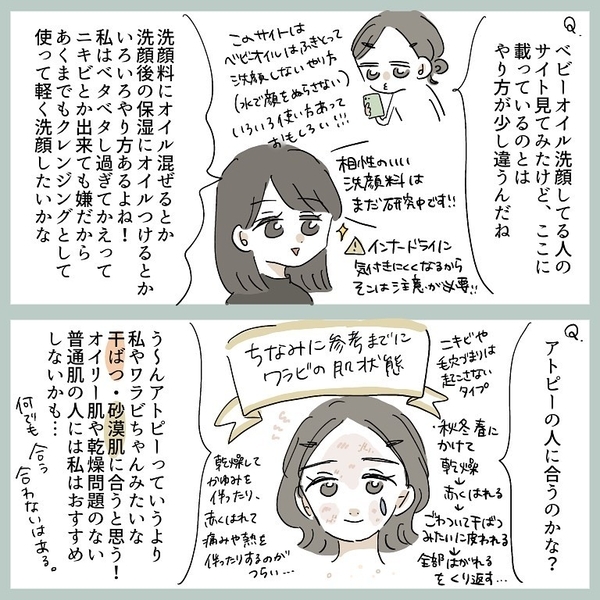 Q.
ベビーオイル洗顔してる人の
サイト見てみたけど、ここに
載っているのとは
やり方が少し違うんだね
このサイトは
ベビーオイルはふきとって
洗顔しないやり方
(水で顔をぬらさない)
いろいろ使い方あって
おもしろい!!!
相性のいい
洗顔料は
まだ研究中です!!
⚠インナードライに
気付きにくくなるから
そこは注意が必要!!
洗顔料にオイル混ぜるとか
洗顔後の保湿にオイルつけるとか
いろいろやり方あるよね!
私はベタベタし過ぎてかえって
ニキビとか出来ても嫌だから
あくまでもクレンジングとして
使って軽く洗顔したいかな
Q.
アトピーの人に合うのかな?
ちなみに参考までに
ワラビの肌状態
ニキビや
毛穴づまりは
起こさない
タイプ
・秋冬春に
かけて
乾燥
↓
赤くはれる
↓
ごわついて干ばつ
みたいに皮われる
↓
全部はがれる
をくり返す…
乾燥して
かゆみを
伴ったり、
赤くはれて
痛みや熱を
伴ったりするのが
つらい…
う〜んアトピーっていうより
私やワラビちゃんみたいな
干ばつ・砂漠肌に合うと思う!
オイリー肌や乾燥問題のない
普通肌の人には私はおすすめ
しないかも…
何でも合う
合わないはある。